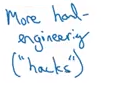 More hand-
engineering
("hacks")